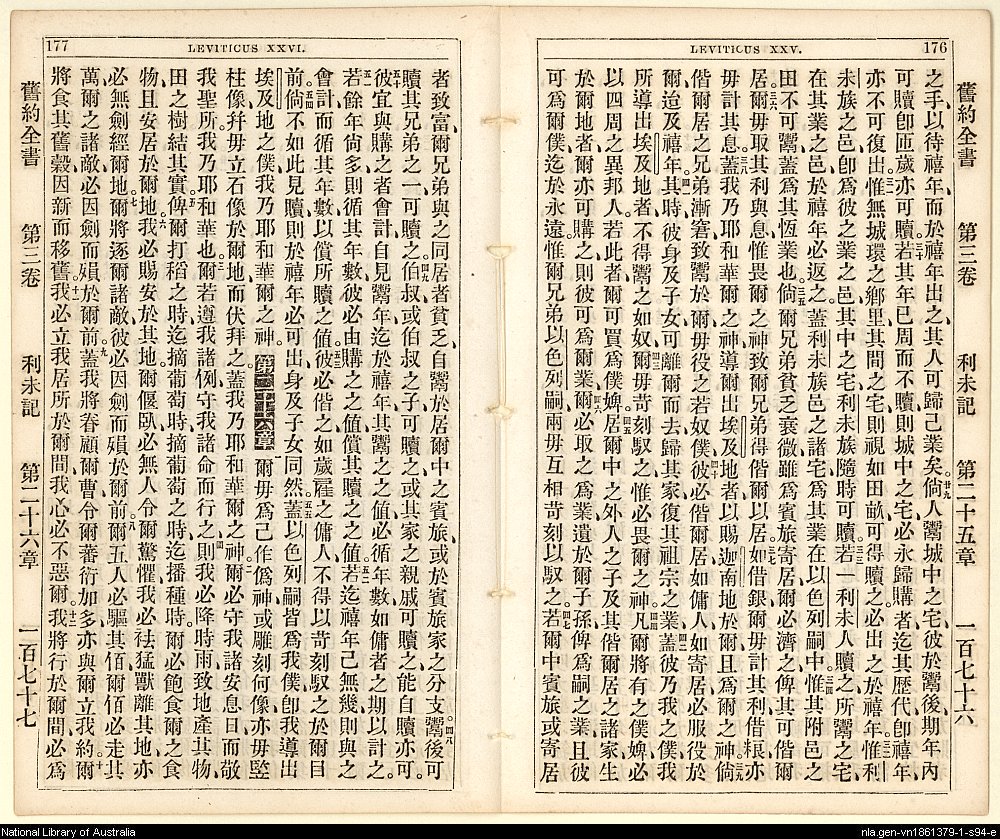 176
LEVITICUS XXV.
舊約全書 第三卷 利未記 第二十五章 一百七十六
之手、以待禧年、而於禧年出之、其人可歸己業矣。廿九倘人鬻城中之宅、彼於鬻後期年內
可贖、卽匝歲亦可贖。三十若其年已周而不贖、則城中之宅必永歸購者、迄其歷代、卽禧年、
亦不可復出。三一惟無城環之鄕里、其間之宅、則視如田畝、可得贖之、必出之於禧年。三二惟利
未族之邑、卽爲彼之業之邑、其中之宅、利未族隨時可贖。三三若一利未人贖之、所鬻之宅
在其業之邑、於禧年必返之。蓋利未族邑之諸宅爲其業、在以色列嗣中。三四惟其附邑之
田不可鬻、蓋爲其恆業也。三五倘爾兄弟貧乏衰微、雖爲賓旅寄居、爾必濟之、俾其可偕爾
居。三六爾毋取其利與息、惟畏爾之神、致爾兄弟得偕爾以居。三七如借銀、爾毋計其利、借粮、亦
毋計其息。三八蓋我乃耶和華爾之神、導爾出埃及地者、以賜迦南地於爾、且爲爾之神。三九倘
偕爾居之兄弟、漸窘致鬻於爾、毋役之若奴僕。四十彼必偕爾居、如傭人、如寄居、必服役於
爾、迄及禧年。四一其時、彼身及子女、可離爾而去、歸其家、復其祖宗之業。四二蓋彼乃我之僕、我
所導出埃及地者、不得鬻之如奴。四三爾毋苛刻馭之、惟必畏爾之神。四四凡爾將有之僕婢、必
以四周之異邦人、若此者、爾可買爲僕婢。四五居爾中之外人之子、及其偕爾居之諸家、生
於爾地者、爾亦可購之、則彼可爲爾業。四六爾必取之爲業、遺於爾子孫、俾爲嗣之業、且彼
可爲爾僕、迄於永遠。惟爾兄弟以色列嗣、兩毋互相苛刻以馭之。四七若爾中賓旅或寄居
177
LEVITICUS XXVI.
者致富、爾兄弟與之同居者貧乏、自鬻於居爾中之賓旅、或於賓旅家之分支、四八鬻後可
贖、其兄弟之一可贖之。四九伯叔或伯叔之子可贖之、或其家之親戚可贖之、能自贖亦可。
五十彼宜與購之者會計、自見鬻年、迄於禧年、其鬻之之値、必循年數、如傭者之期以計之。
五一若餘年尙多、則循其年數、彼必由購之之値、償其贖之之値。五二若迄禧年己無幾、則與之
會計、而循其年數、以償所贖之値。五三彼必偕之如歲雇之傭人、不得以苛刻馭之於爾目
前。五四倘不如此見贖、則於禧年必可出、身及子女同然。五五蓋以色列嗣皆爲我僕、卽我導出
埃及地之僕、我乃耶和華爾之神。第二十六章 爾毋爲己作僞神、或雕刻何像、亦毋竪
柱像、幷毋立石像於爾地、而伏拜之。蓋我乃耶和華爾之神。二爾必守我諸安息日、而敬
我聖所、我乃耶和華也。三爾若遵我諸例、守我諸命而行之、四則我必降時雨、致地產其物、
田之樹結其實。五俾爾打稻之時、迄摘葡萄時、摘葡萄之時、迄播種時。爾必飽食爾之食
物、且安居於爾地。六我必賜安於其地、爾偃臥、必無人令爾驚懼、我必祛猛獸離其地、亦
必無劍經爾地。七爾將逐爾諸敵、彼必因劍而殞於爾前。八爾五人必驅其佰、爾佰必走其
萬、爾之諸敵必因劍而殞於爾前。九蓋我將眷顧爾曹、令爾蕃衍加多、亦與爾立我約。十爾
將食其舊穀、因新而移舊。十一我必立我居所於爾間、我心必不惡爾。十二我將行於爾間、必爲
舊約全書 第三卷 利未記 第二十六章 一百七十七
National Library of Australia
nla.gen-vn1861379-1-s94-e